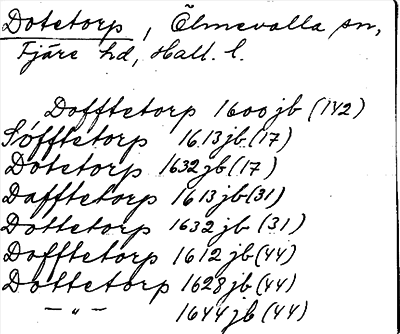 Dotetorp, Ölmevalla sn,
Fjäre hd, Hall. l.
Dofftetorp 1600 jb (142)
Söfftetorp 1613 jb (17)
Dotetorp 1632 jb (17)
Dafftetorp 1613 jb (31)
Dottetorp 1632 jb (31)
Dofftetorp 1612 jb (44)
Dottetorp 1628 jb (44)
— " — 1644 jb (44)